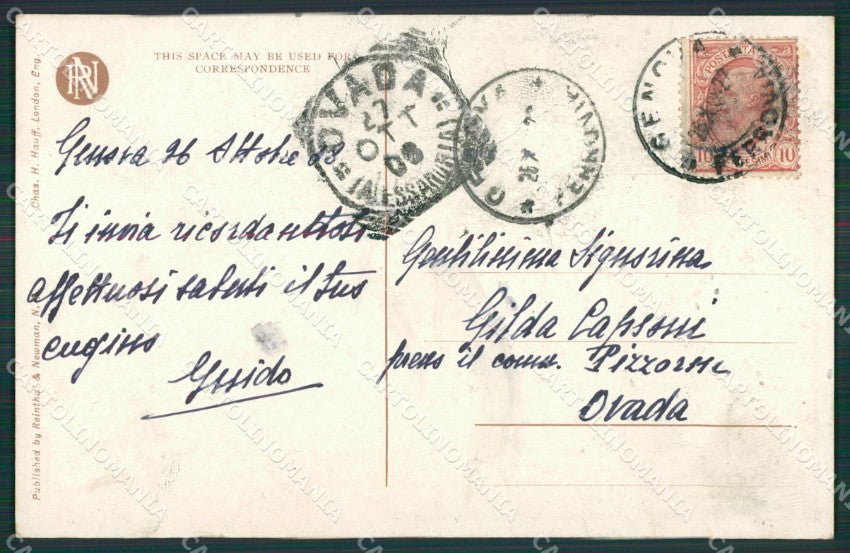 THIS SPACE MAY BE USED FOR
CORRESPONDENCE
Genova 26 Ottobre 08
Ti invia ricordandoti
affettuosi saluti il tuo
cugino
Guido
Gentilissima Signorina
Gilda Capsoni
presso il comm. Pizzorni
Ovada
OVADA
27
OTT
08
(ALESSANDRIA)
GENOVA
FERROVIA
26 X
GENOVA
FERROVIA
POSTE ITALIANE
10 10
Published by Reinthal & Newman, N.
Chas. H. Hauff, London, Eng.
RN
CARTOLINOMANIA